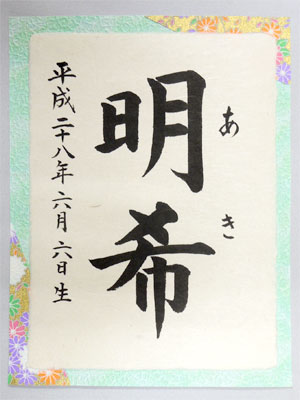 明希
あき
平成二十八年六月六日生